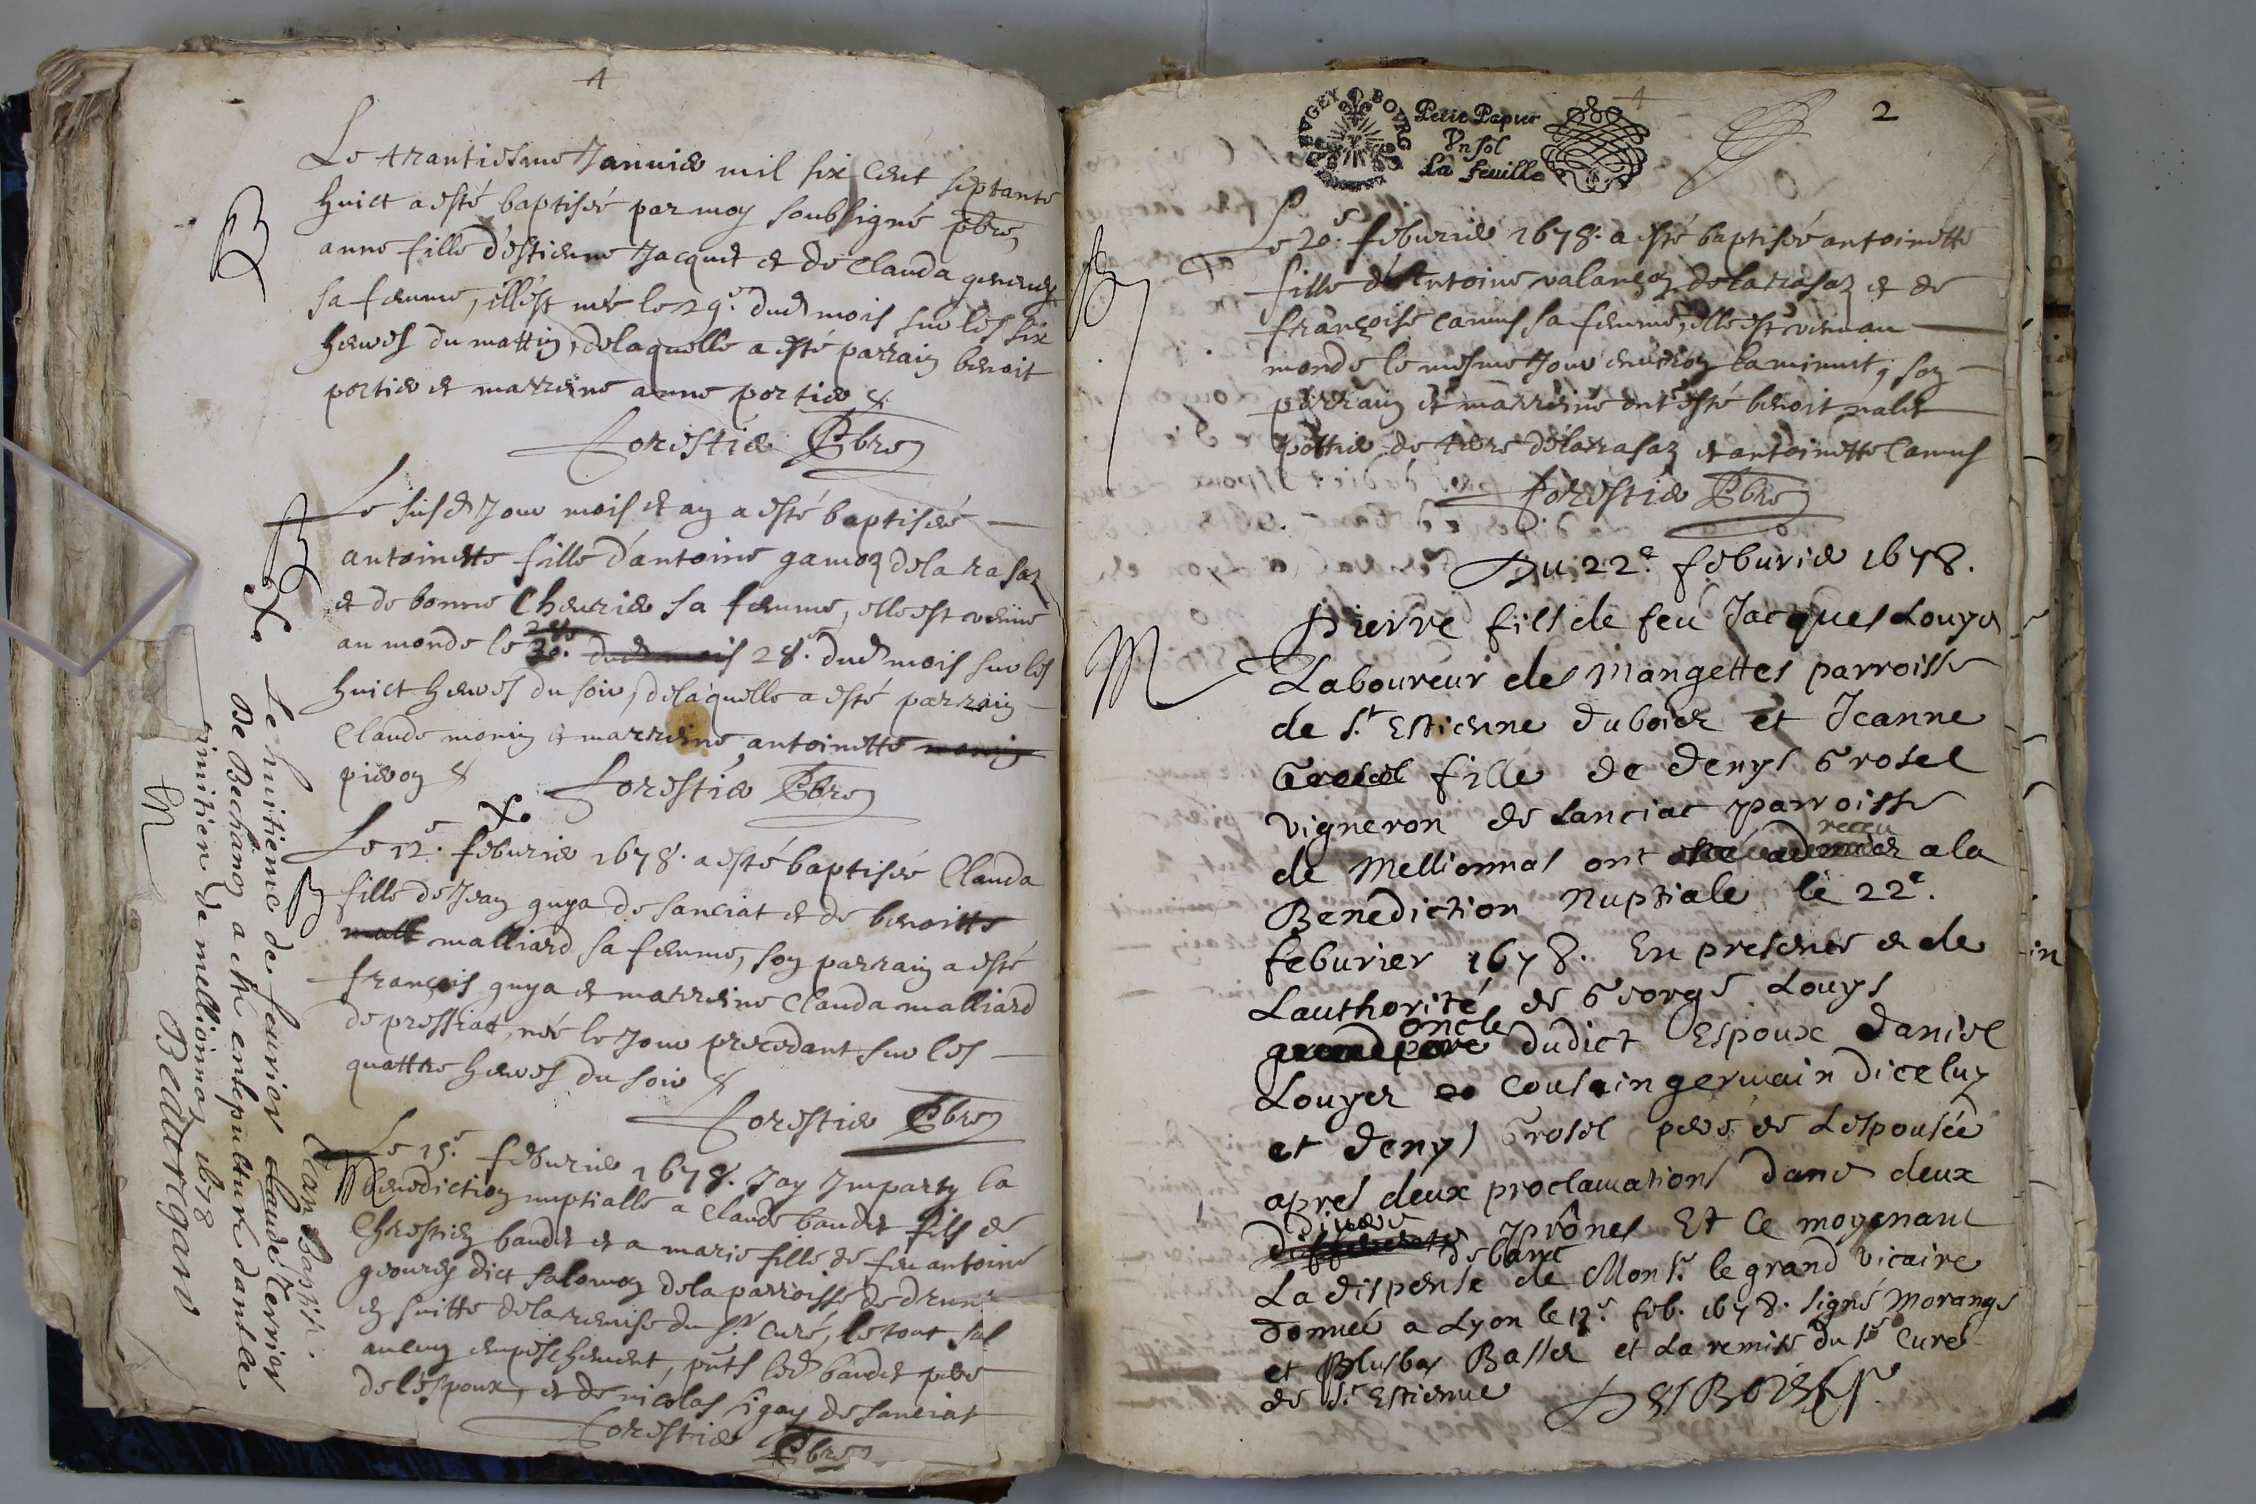 4
B
Le trantiesme Janvier mil six cent septante
huict a esté baptisée par moy soubsigné pbre,
anne fille d'estienne Jacquet et de Clauda
sa femme, ell'est née le 29e. dud mois sur les six
heures du mattin, de laquelle a esté parrain benoit
portier et marreine anne portier &.
forestier Pbre
B
Le susd Jour mois et an a esté baptisée
antoinette fille d'antoine gamoz de la rasaz
et de bonne Chevrier sa femme, elle est venüe
au monde le 30. dud mois 28e. dud mois sur les
huict heures du soir, de laquelle a esté parrain
Claude monin et marreine antoinette monin
pieron &
forestier Pbre
B
Le 12e. feburier 1678. a esté baptisée Clauda
fille de Jean guya de sanciat et de benoitte
mall malliard sa femme, son parrain a esté
françois guya et marreine Clauda malliard
de pressiat, née le Jour precedant sur les
quattre heures du soir &
forestier Pbre
M
Le 15e. feburier 1678. Jay Imparty la
benediction nuptialle a Claude baudet fils de
Chrestien baudet et a marie fille de feu antoine
dict salomon de la parroisse de
en suitte de la remise du sr. Curé, le tout sal
aucun empeschement, pnts led baudet pere
de l'espoux, et de nicolas sigay de sanciat
forestier Pbre
Le huitieme de feurier Claude Terrier
Jean Bastie.
De Bechanoz a eté ensepulturé dans le
cimitiere de mellionnaz 1678
M
Bedarregan
BVGEY BOVRG
Petit Papier
Vn sol
La feuille
4
2
B
Le 20e. feburier 1678. a esté baptisée antoinette
fille d'Antoine valançon de la rasaz et de
françoise Camus sa femme, elle est venu au
monde le mesme Jour environ la minuit, son
parrain et marreine ont esté benoit nalet
pottier de terre de la rasaz et antoinette Camus
forestier Pbre
Du 22e. feburier 1678.
M
Pierre fils de feu Jacques Louyer
Laboureur des Mangettes parroisse
de St. Estienne dubois et Jeanne
Grosel fille de denys Grosel
vigneron de sanciac parroisse
receu
de Mellionnas ont esté a la
Benediction Nuptiale le 22e.
feburier 1678. En presence et de
Lauthorité de George Louys
oncle
grand pere dudict Espoux Daniel
Louyer cousain germain diceluy
et denys Grosel pere de Lespousée
apres deux proclamations dans deux
divers
differents prônes Et Ce moyenant
de banc
La dispense de Monsr. le grand vicaire
donnée a Lyon le 17e. feb. 1678. signé Morange
et plusbas Basset et la remise du sr Curé
de St. Estienne
DesBois